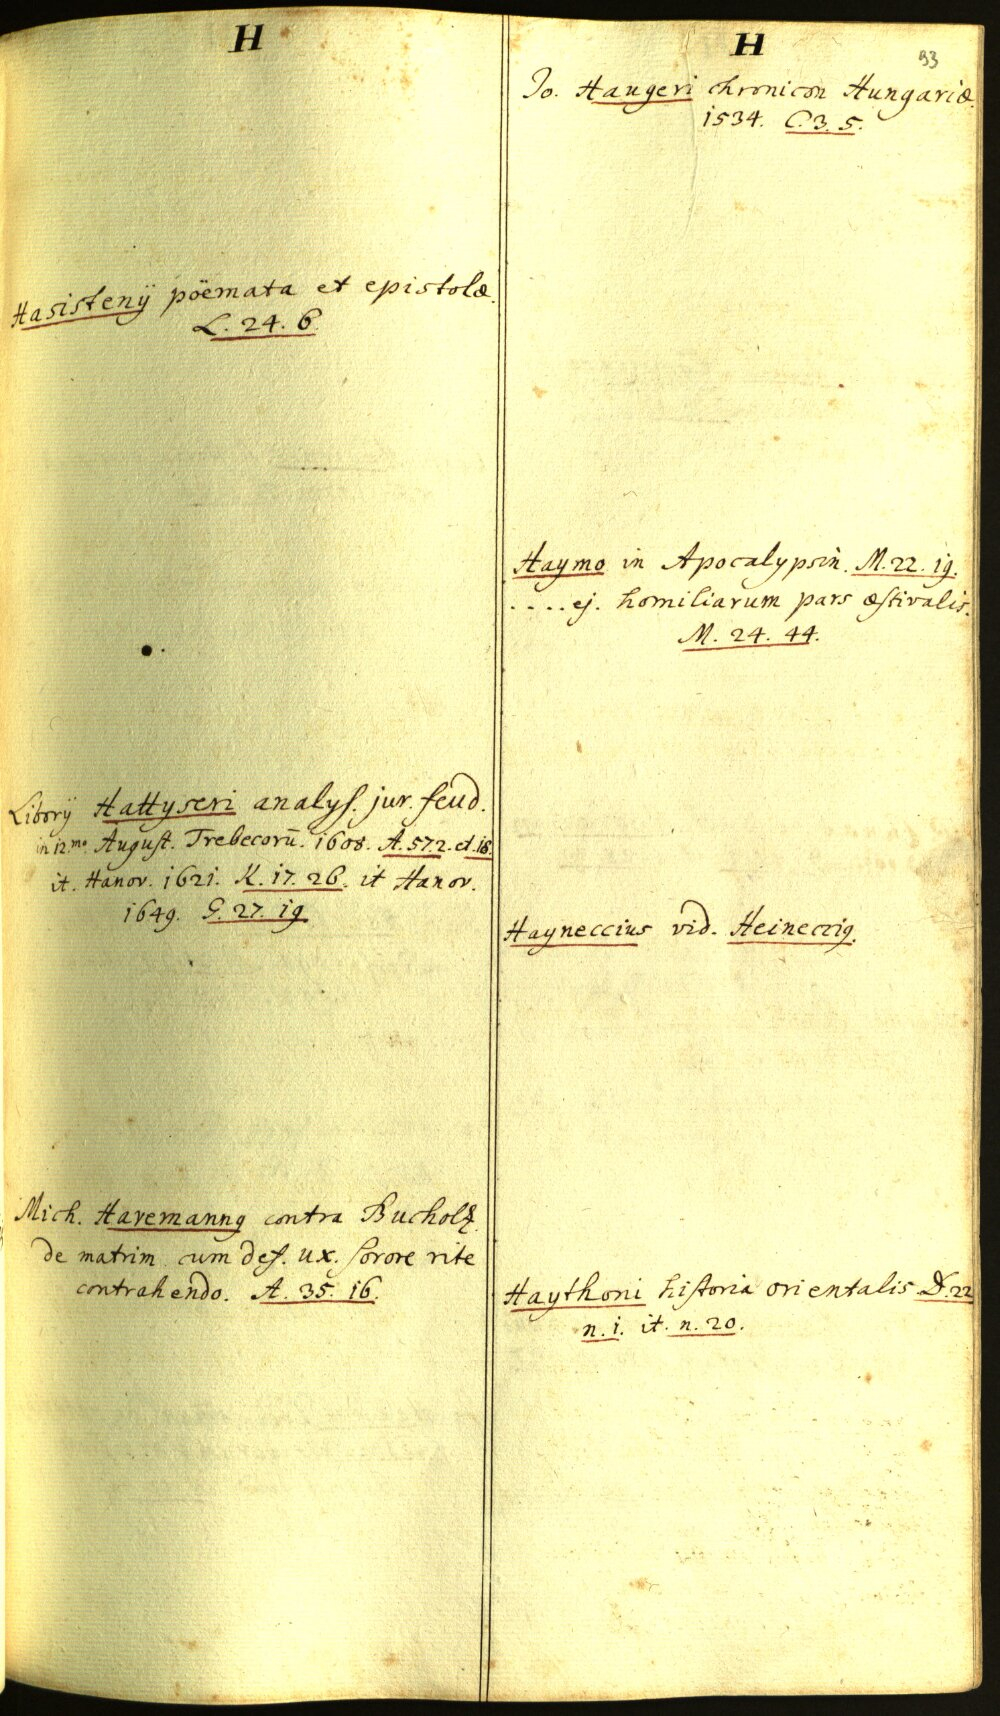 H
Hasistenÿ pöemata et epistolæ.
L. 24. 6
Liborÿ Hattyseri analys. jur. feud.
in 12.mo August. Trebecorū. 1608. A. 57.2. et. 18.
it. Hanov. 1621. K. 17. 26. it Hanov.
1649. G. 27. 19.
Mich. Havemannq contra Bucholtz.
de matrim. cum def. ux. sorore rite
contrahendo. A. 35. 16.
H
93
Jo. Haugeri chronicon Hungariæ.
1534. C. 3. 5.
Haymo in Apocalypsin. M. 22. 19.
. . . . ej. homiliarum pars æstivalis.
M. 24. 44.
Hayneccius vid. Heinecciq.
Haythoni historia orientalis D. 22
n. 1. it. n. 20.